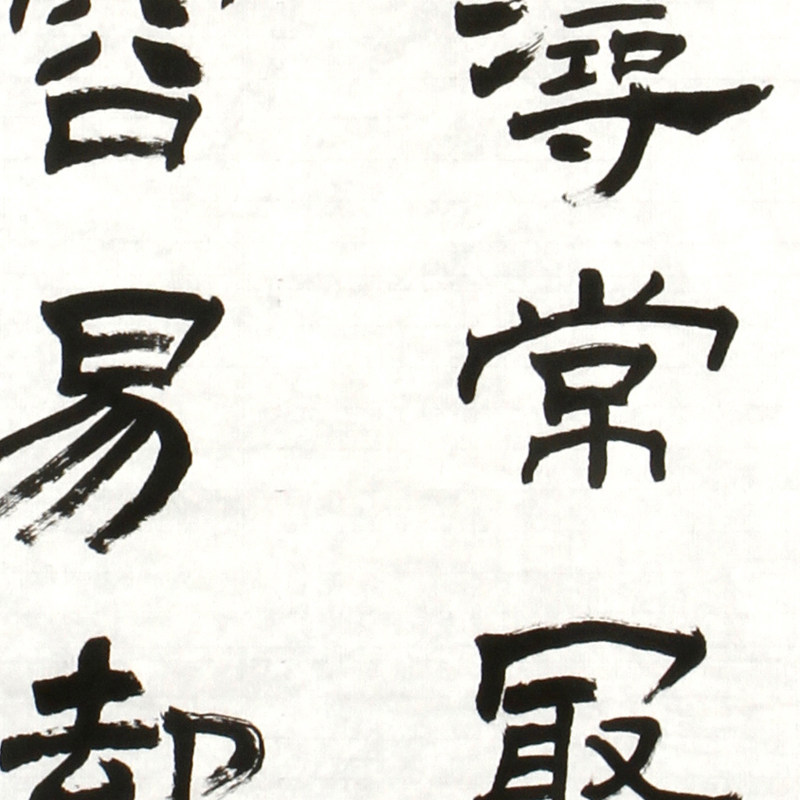 尋常冣
容易却